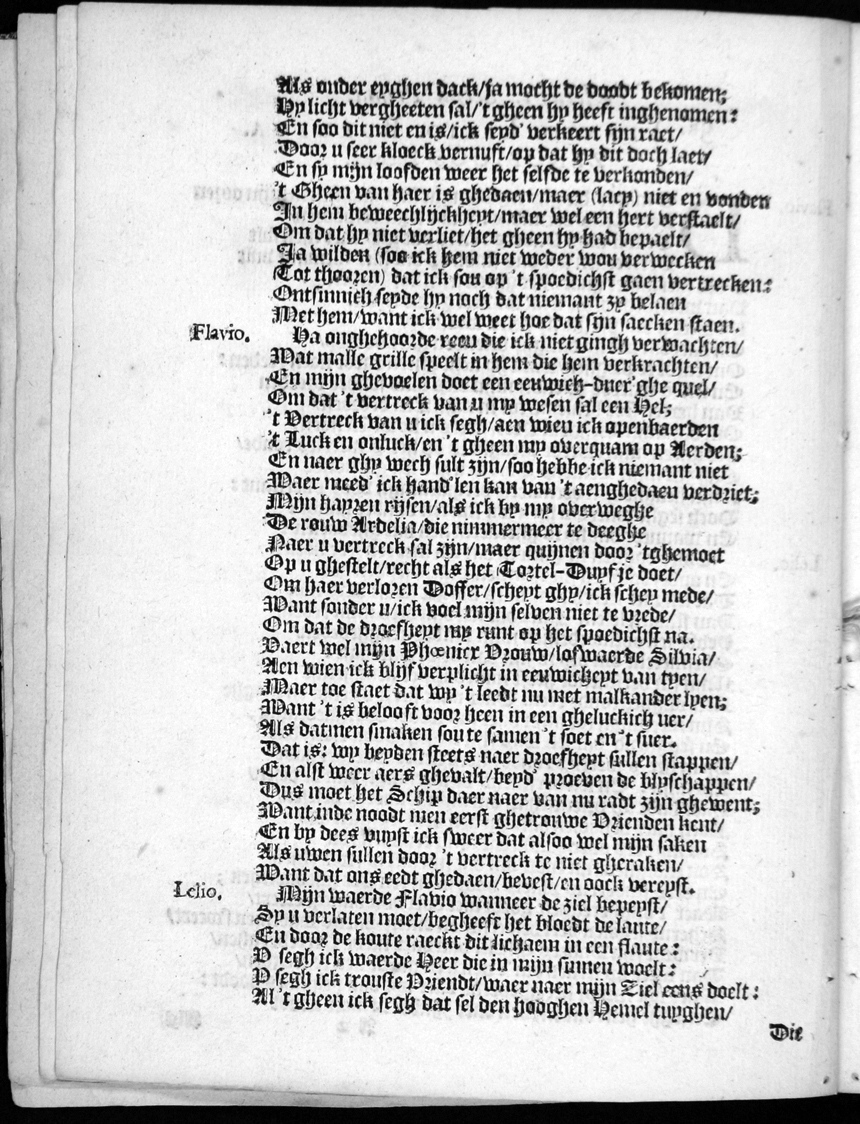 Als onder eyghen dack/ja mocht de doodt bekomen;
Hy licht vergheeten sal/'t gheen hy heeft inghenomen:
En soo dit niet en is/ick seyd' verkeert sijn raet/
Door u seer kloeck vernuft/op dat hy dit doch laet/
En sy mijn loofden weer het selfde te verkonden/
't Gheen van haer is ghedaen/maer (lacy) niet en vonden
In hem beweechlijckheyt/maer wel een hert verstaelt/
Om dat hy niet verliet/het gheen hy had bepaelt/
Ja wilden (soo ick hem niet weder wou verwecken
Tot thooren) dat ick sou op 't spoedichst gaen vertrecken:
Ontsinnich seyde hy noch dat niemant zy belaen
Met hem/want ick wel weet hoe dat sijn saecken staen.
Flavio. Ha onghehoorde reeu die ick niet gingh verwachten/
Wat malle grille speelt in hem die hem verkrachten/
En mijn ghevoelen doet een eeuwich-duer'ghe quel/
Om dat 't vertreck van u my wesen sal een Hel;
't Vertreck van u ick segh/aen wien ick openbaerden
't Luck en onluck/en 't gheen my overquam op Aerden;
En naer ghy wech sult zijn/soo hebbe ick niemant niet
Waer meed' ick hand'len kan van 't aenghedaen verdriet;
Mijn hayren rijsen/als ick by my overweghe
De rouw Ardelia/die nimmermeer te deeghe
Naer u vertreck sal zijn/maer quijnen door 'tghemoet
Op u ghestelt/recht als het Tortel-Duyfje doet/
Om haer verloren Doffer/scheyt ghy/ick schey mede/
Want sonder u/ick voel mijn selven niet te vrede/
Om dat de droefheyt my runt op het spoedichst na.
Vaert wel mijn Phœnicx Vrouw/lofwaerde Silvia/
Aen wien ick blijf verplicht in eeuwicheyt van tyen/
Maer toe staet dat wy 't leedt nu met malkander lyen;
Want 't is belooft voor heen in een gheluckich uer/
Als datmen smaken sou te samen 't soet en 't suer.
Dat is: wy beyden steets naer droefheyt sullen stappen/
En alst weer aers ghevalt/beyd' proeven de blyschappen/
Dus moet het Schip daer naer van nu radt zijn ghewent;
Want inde noodt men eerst ghetrouwe Vrienden kent/
En by dees vuyst ick sweer dat alsoo wel mijn saken
Als uwen sullen door 't vertreck te niet gheraken/
Want dat ons eedt ghedaen/bevest/en oock vereyst.
Lelio. Mijn waerde Flavio wanneer de ziel bepeyst/
Sy u verlaten moet/begheeft het bloedt de laute/
En door de koute raeckt dit lichaem in een flaute:
V segh ick waerde Heer die in mijn sinnen woelt:
V segh ick trouste Vriendt/waer naer mijn Ziel eens doelt:
Al 't gheen ick segh dat sel den hooghen Hemel tuyghen/
Die